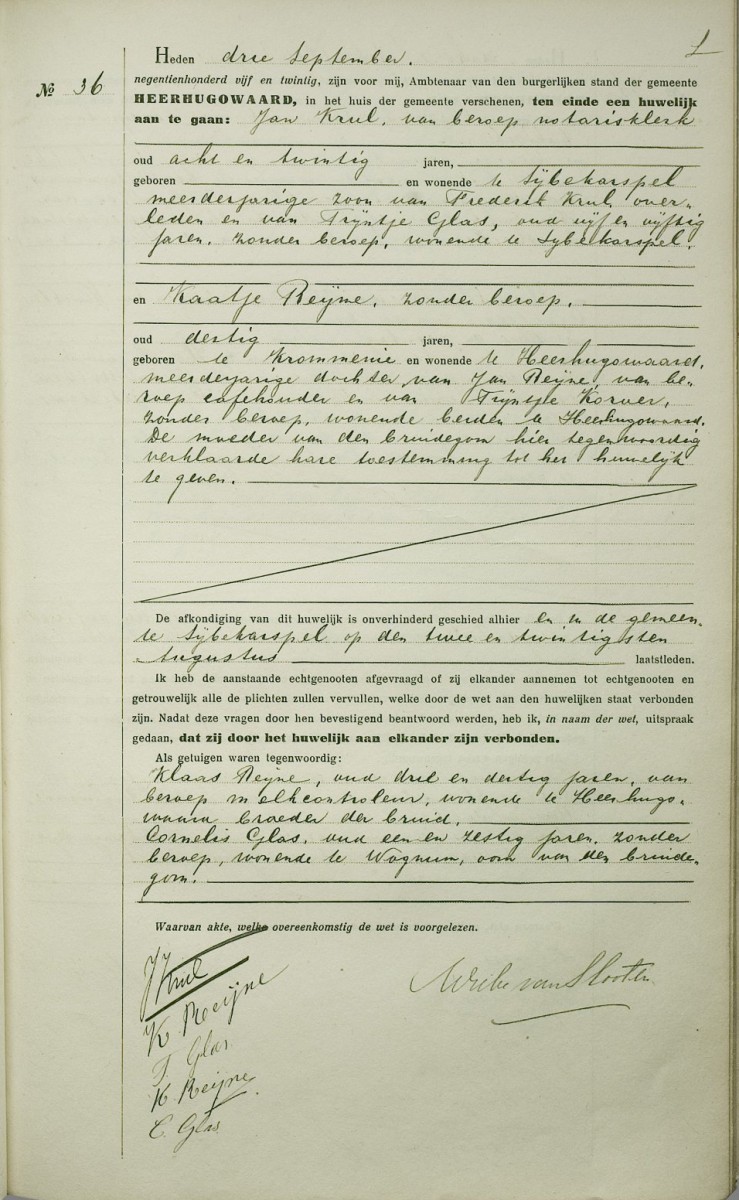 Heden drie September.
1
negentienhonderd vijf en twintig, zijn voor mij, Ambtenaar van den burgerlijken stand der gemeente
№ 36
HEERHUGOWAARD, in het huis der gemeente verschenen, ten einde een huwelijk
aan te gaan: Jan Krul, van beroep notarisklerk
oud acht en twintig jaren,
geboren en wonende te Sijbekarspel
meerderjarige zoon van Frederik Krul, over-
leden en van Trijntje Glas, oud vijf en vijftig
jaren, zonder beroep, wonende te Sijbekarspel.
en Kaatje Reijne, zonder beroep,
oud dertig jaren,
geboren te Krommenie en wonende te Heerhugowaard,
meerderjarige dochter van Jan Reijne, van be-
roep cafehouder en van Trijntje Korver,
zonder beroep, wonende beiden te Heerhugowaard.
De moeder van den bruidegom hier tegenwoordig
verklaarde hare toestemming tot het huwelijk
te geven.
De afkondiging van dit huwelijk is onverhinderd geschied alhier en in de gemeen-
te Sijbekarspel op den twee en twintigsten
Augustus laatstleden.
Ik heb de aanstaande echtgenooten afgevraagd of zij elkander aannemen tot echtgenooten en
getrouwelijk alle de plichten zullen vervullen, welke door de wet aan den huwelijken staat verbonden
zijn. Nadat deze vragen door hen bevestigend beantwoord werden, heb ik, in naam der wet, uitspraak
gedaan, dat zij door het huwelijk aan elkander zijn verbonden.
Als getuigen waren tegenwoordig:
Klaas Reijne, oud drie en dertig jaren, van
beroep melkcontroleur, wonende te Heerhugo-
waard broeder der bruid,
Cornelis Glas, oud een en zestig jaren, zonder
beroep, wonende te Wognum, oom van den bruide-
gom.
Waarvan akte, welke overeenkomstig de wet is voorgelezen.
J Krul
K. Reijne
van Slooten
T. Glas.
K. Reijne
C. Glas